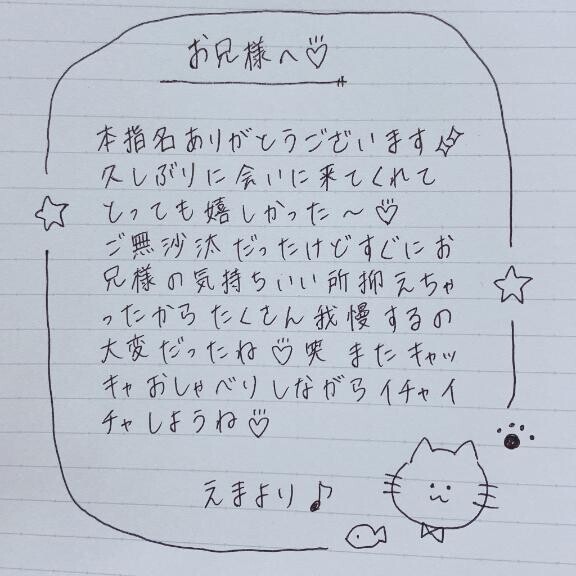 お兄様へ♡
本指名ありがとうございます✨
久しぶりに会いに来てくれて
とっても嬉しかった〜♡
ご無沙汰だったけどすぐにお
兄様の気持ちいい所抑えちゃ
ったからたくさん我慢するの
大変だったね♡笑 またキャッ
キャおしゃべりしながらイチャイ
チャしようね♡
えまより♪